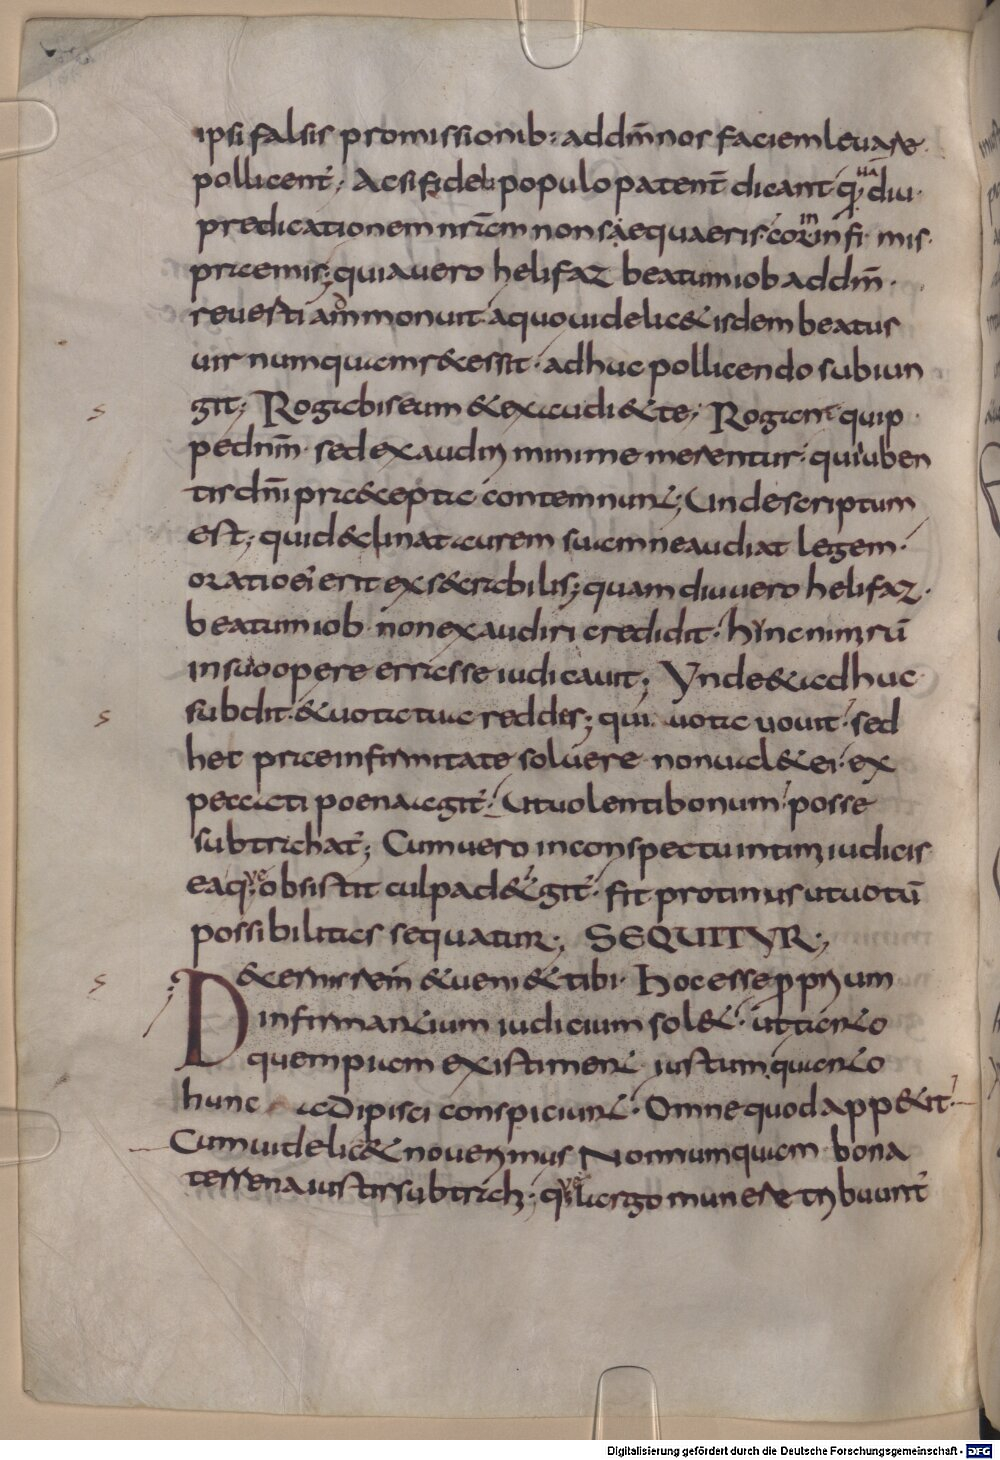 ipsi falsis promissionib: addm̄ nos faciem levare
pollicent̄; Acsi fideli populo patent̄ dicant· q̣ diu
predicationem nr̄am non sequaeris· coram infi mis
praemis; quia vero helifaz beatum iob ad dm̄·
reverti ammonuit· a quo videlic& isdem beatus
vir numquam rec&essit· adhuc pollicendo subiun
git; Rogabis eum & exaudi& te; Rogant quip
pe dnm̄· sed exaudiri minime merentur· qui iuben
tis dn̄i praecepta contemnunt; Unde scriptum
est; qui d&clinat aurem suam ne audiat legem·
oratio ei erit exs&crabilis; quam diu vero helifaz·
beatum iob· non exaudiri credidit· hunc nimirū
in suo opere errasse iudicavit; Unde & adhuc
subdit· & vota tua reddes; qui vota vovit· sed
hec prae infirmitate solvere non val& ei· ex
peccati poena agit̄· Ut volenti bonum· posse
subtrahat̄; Cum vero in conspectu intimi iudicis
ea q̣ obsistit culpa d&git̄· fit protinus ut votū
possibilitas sequatur; SEQUITUR;
D&cernis rem & veni& tibi· Hoc esse proprium
infirmantium iudicium sol&· ut tanto
quempiam existiment iustum quanto
hunc adipisci conspiciunt· Omne quod app&it
Cum videlic& noverimus Nonnumquam bona
terrena iustis subtrahi; q̣ largo munere tribuunt̄
Digitalisierung gefördert durch die Deutsche Forschungsgemeinschaft - DFG